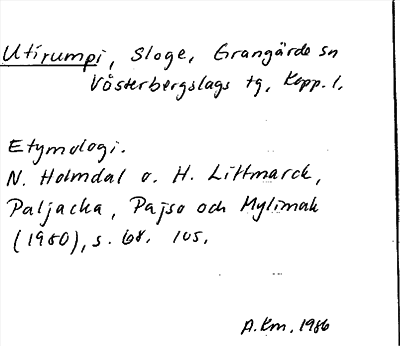 Utirumpi, Sloge, Grangärde sn
Västerbergslags tg, Kopp. l.
Etymologi.
N. Holmdal o. H. Littmarck,
Paljacka, Pajso och Mylimak
(1980), s. 68. 105.
A.Km. 1986